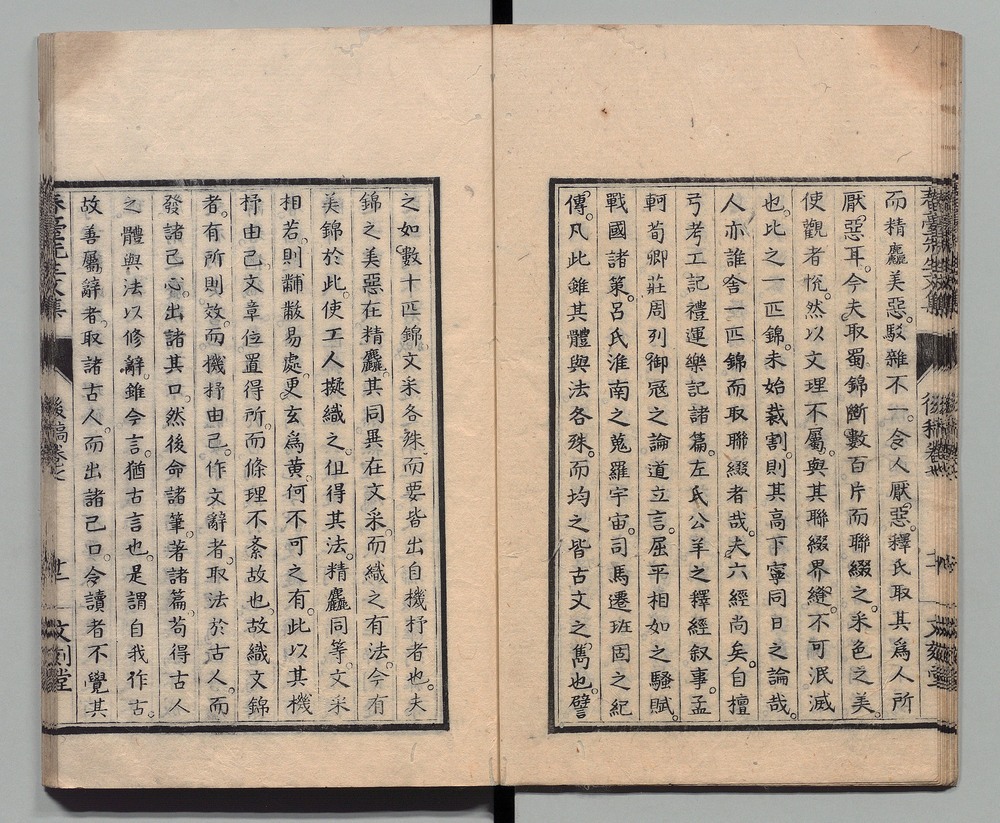 而精麤美惡。駁雜不一。令人厭惡。釋氏取其爲人所
厭惡耳。今夫取蜀錦斷數百片而聯綴之。采色之美。
使觀者恍然以文理不屬。與其聯綴界縫。不可泯滅
也。比之一匹錦。未始裁割。則其高下寧同日之論哉。
人亦誰舍一匹錦而取聯綴者哉。夫六經尚矣。自檀
弓考工記禮運樂記諸篇。左氏公羊之釋經叙事。孟
軻荀卿莊周列御寇之論道立言。屈平相如之騷賦。
戰國諸策。呂氏淮南之蒐羅宇宙。司馬遷班固之紀
傳。凡此雖其體與法各殊。而均之皆古文之雋也。譬
之如數十匹錦。文采各殊。而要皆出自機杼者也。夫
錦之美惡在精麤。其同異在文采。而織之有法。今有
美錦於此。使工人擬織之。但得其法。精麤同等。文采
相若。則黼黻易處。更玄爲黃。何不可之有。此以其機
杼由己。文章位置得所。而條理不紊故也。故織文錦
者。有所則效。而機杼由己。作文辭者。取法於古人。而
發諸己心。出諸其口。然後命諸筆。著諸篇。苟得古人
之體與法以修辭。雖今言。猶古言也。是謂自我作古。
故善屬辭者。取諸古人。而出諸己口。令讀者不覺其
春臺先生文集
後稿卷七